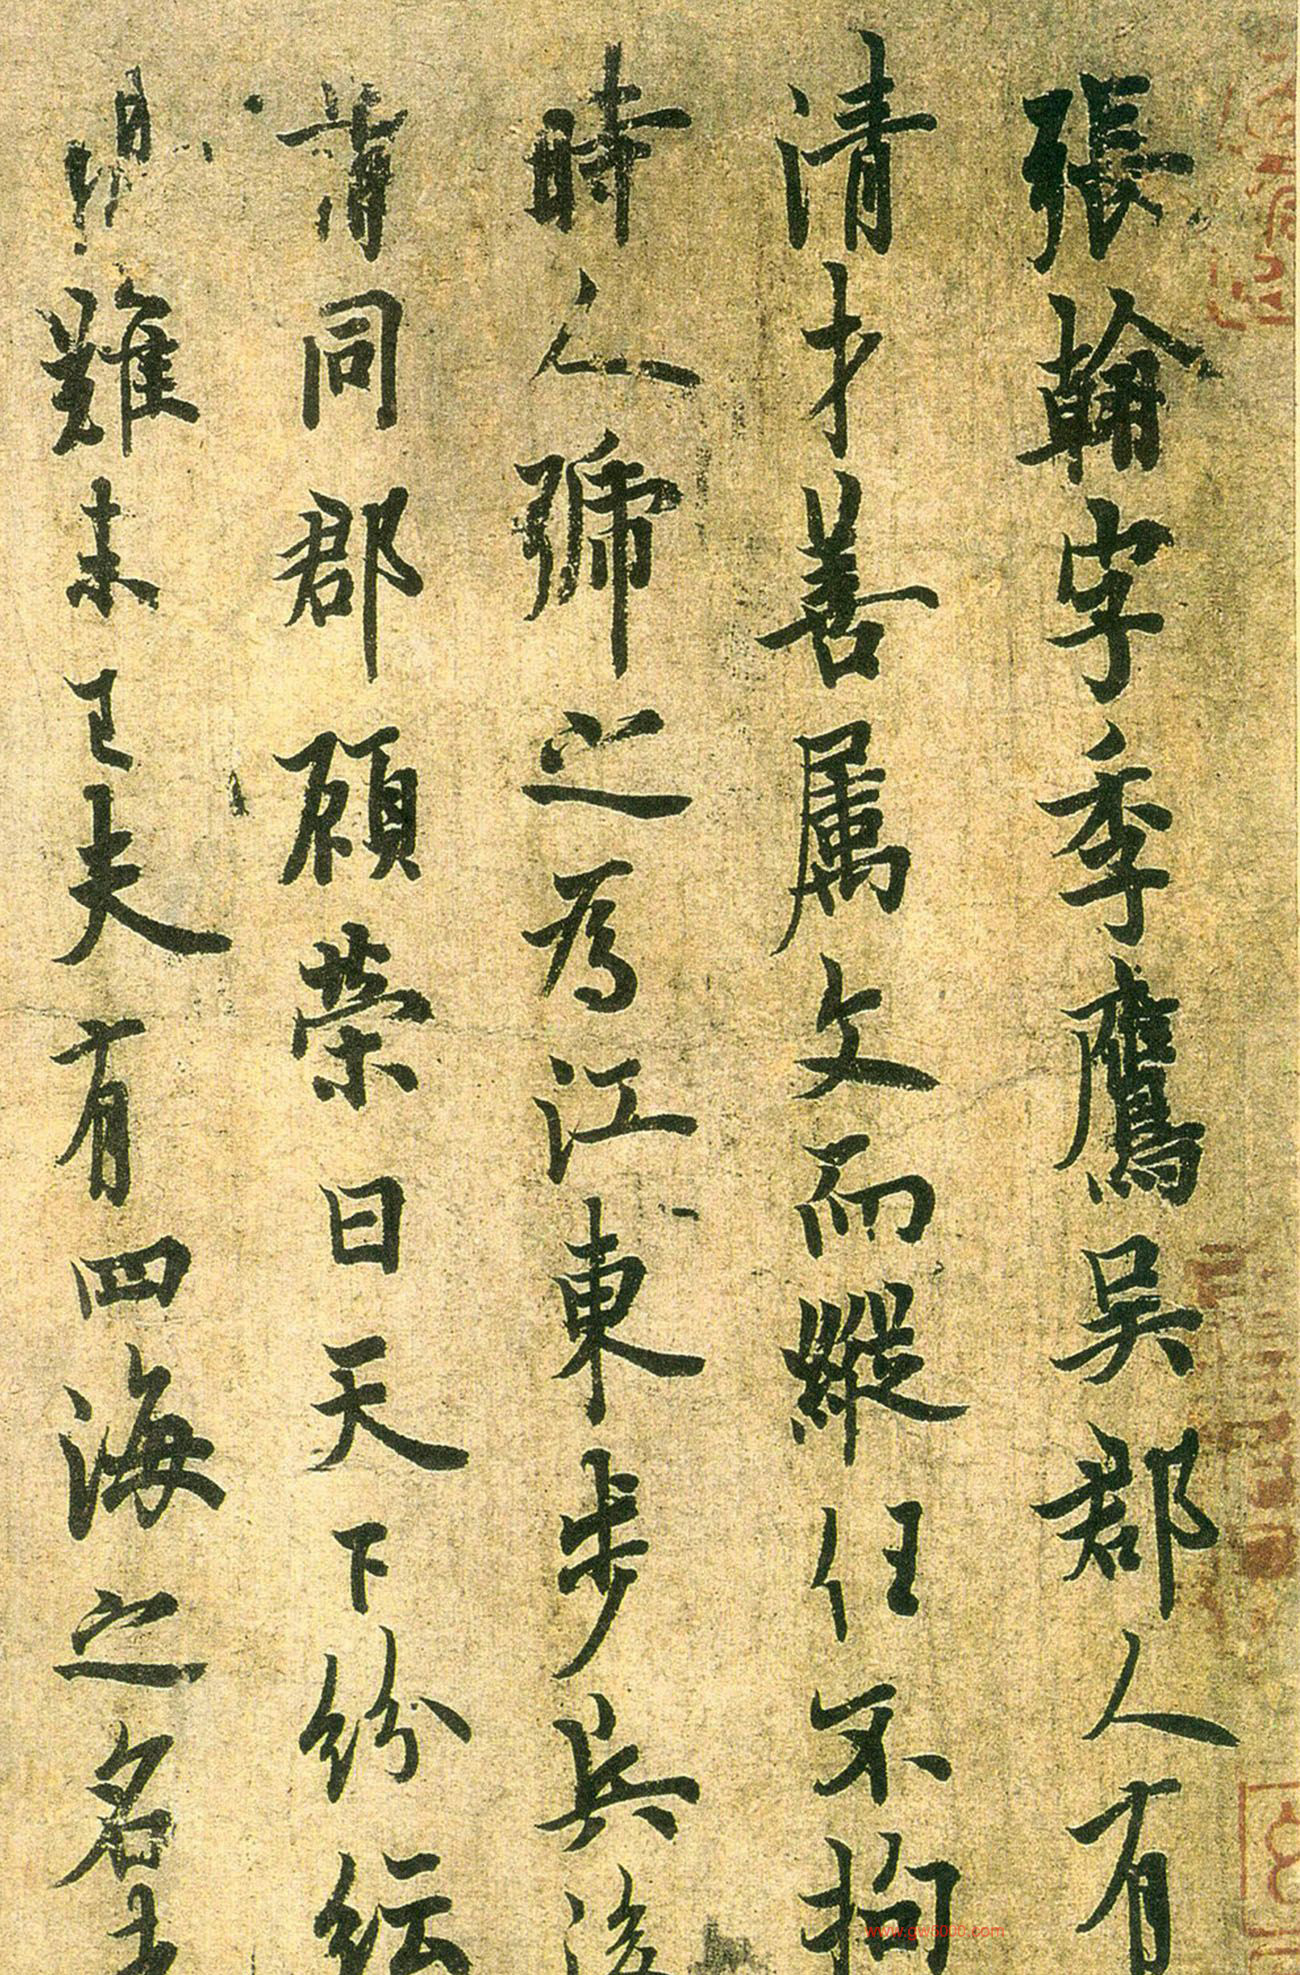 張翰字季鷹吳郡人有
清才善属文而縱任不拘
時人號之為江東步兵後
謂同郡顧榮曰天下紛紜
難未已夫有四海之名
www.gw5000.com